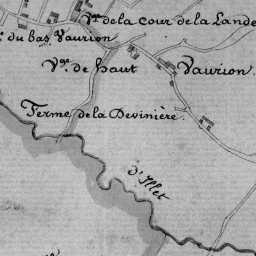 V.ge de la Cour de la Lande
du bas Vaurion
V.ge de haut Vaurion.
Ferme de la Devinière.
d'Illet